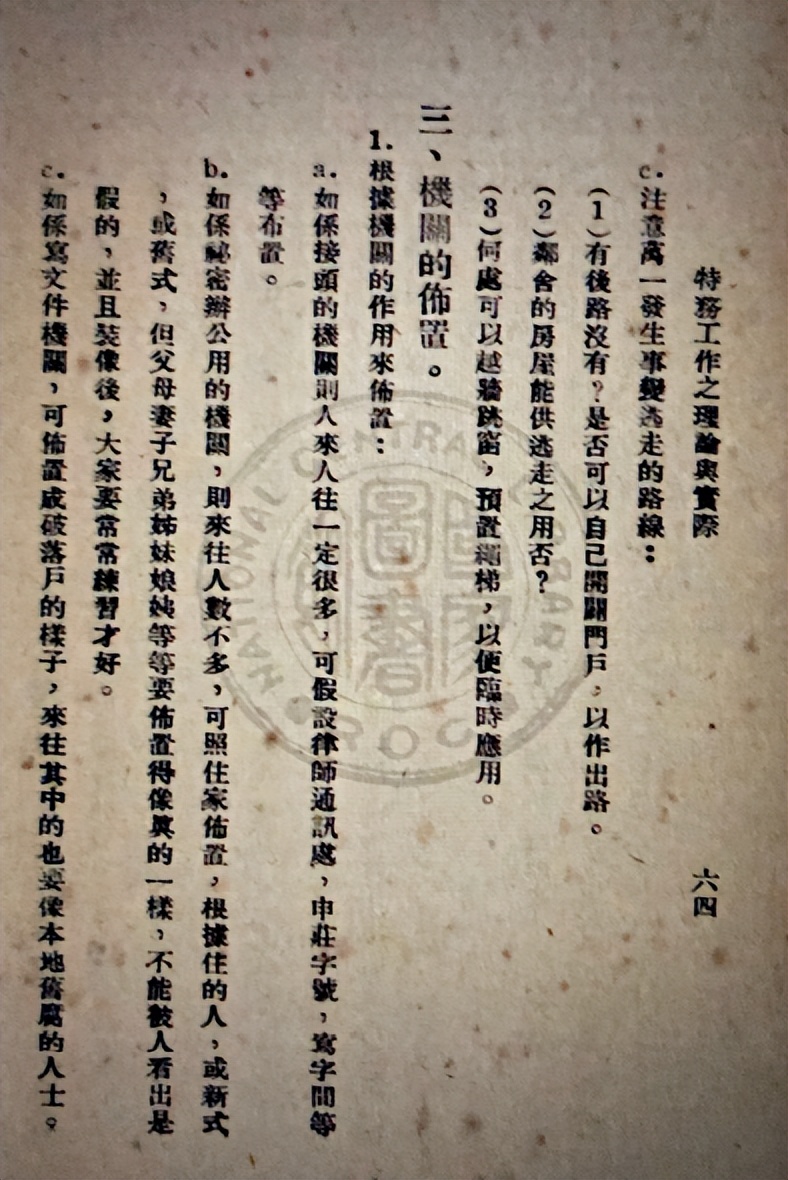 特務工作之理論與實際
六四
c.注意萬一發生事變逃走的路線：
(1)有後路沒有?是否可以自己開闢門戶，以作出路。
(2)鄰舍的房屋能供逃走之用否?
(3)何處可以越牆跳窗，預置繩梯，以便臨時應用。
三、機關的佈置。
1.根據機關的作用來佈置：
a.如係接頭的機關則人來人往一定很多，可假設律師通訊處，申莊字號，寫字間等
等布置。
b.如係祕密辦公用的機關，則來往人數不多，可照住家佈置，根據住的人，或新式
，或舊式，但父母妻子兄弟姊妹娘姨等等要佈置得像眞的一樣，不能被人看出是
假的，並且裝像後，大家要常常練習才好。
c.如係寫文件機關，可佈置成破落戶的樣子，來往其中的也要像本地舊腐的人士。
NATIONAL CENTRAL LIBRARY
ROC
國家圖書館